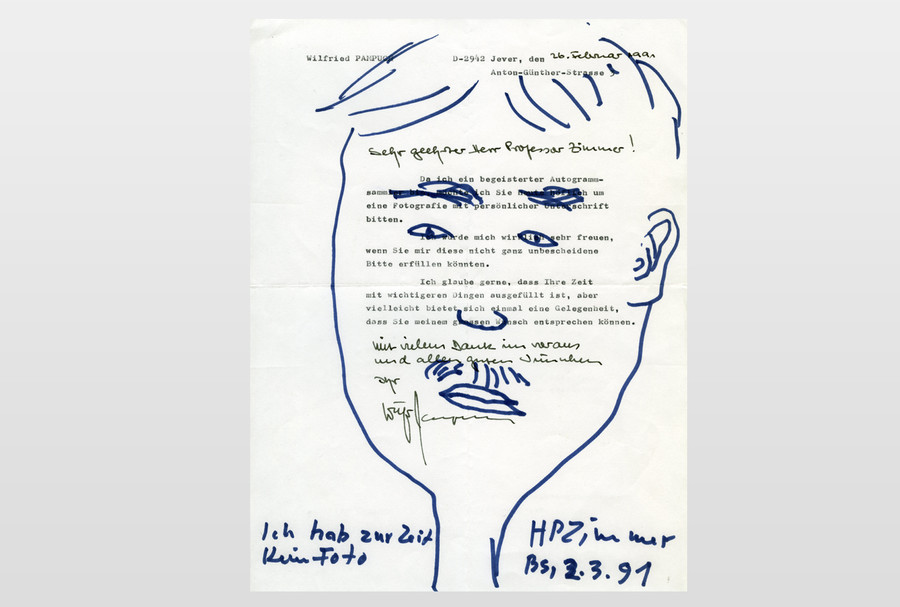 Wilfried PAMPUCH
D-2942 Jever, den 26. Februar 1991
Anton-Günther-Strasse
Sehr geehrter Herr Professor Zimmer!
Da ich ein begeisterter Autogramm-
sammler bin, möchte ich Sie heute herzlich um
eine Fotografie mit persönlicher Unterschrift
bitten.
Ich würde mich wirklich sehr freuen,
wenn Sie mir diese nicht ganz unbescheidene
Bitte erfüllen könnten.
Ich glaube gerne, dass Ihre Zeit
mit wichtigeren Dingen ausgefüllt ist, aber
vielleicht bietet sich einmal eine Gelegenheit,
dass Sie meinem grossen Wunsch entsprechen können.
Mit vielem Dank im voraus
und allen guten Wünschen
Ihr
Ich hab zur Zeit
Kein Foto
HPZimmer
Bs, 2.3.91